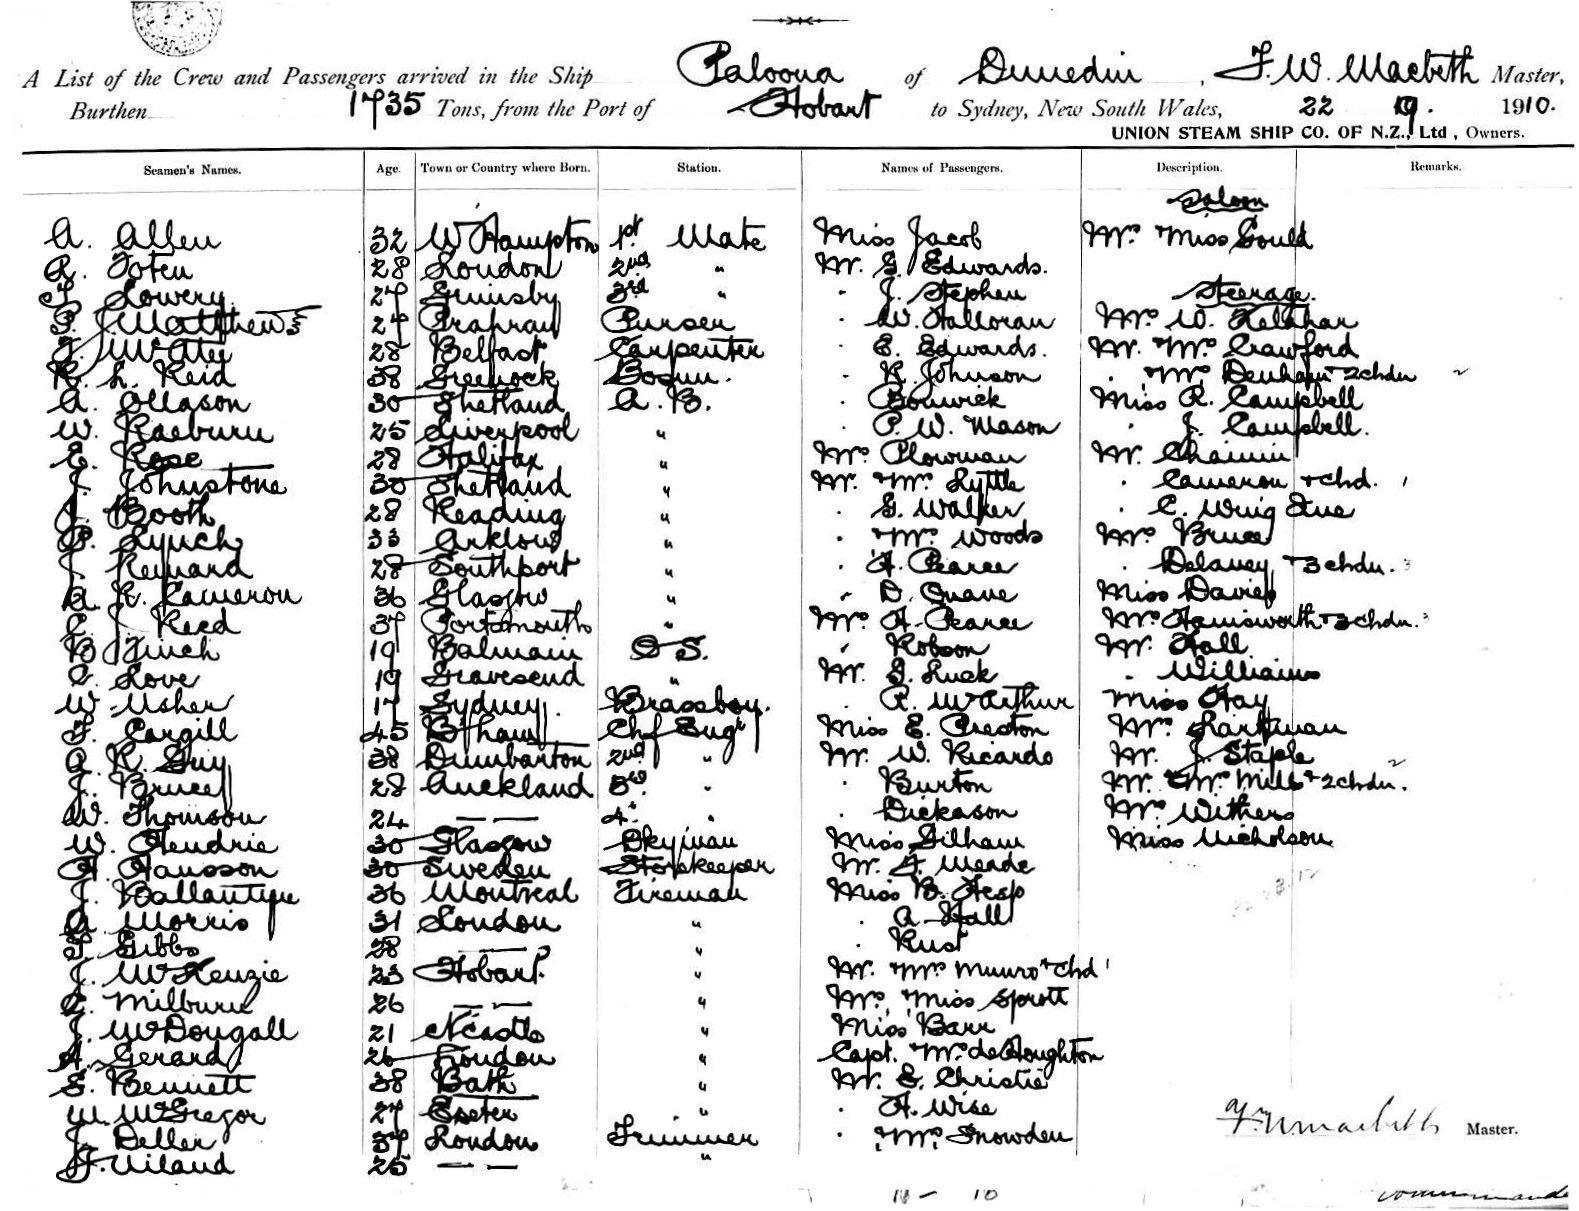 A List of the Crew and Passengers arrived in the Ship Paloona of Dunedin, F. W. Macbeth Master,
Burthen 1735 Tons, from the Port of Hobart to Sydney, New South Wales, 22 1910.
UNION STEAM SHIP CO. OF N.Z., Ltd, Owners.
Seamen's Names. Age. Town or Country where Born. Station. Names of Passengers. Description. Remarks.
Saloon
A. Allen 32 W Hampton 1st Mate Miss Jacob Mrs " Miss Gould
A. Toten 28 London 2nd " Mr. G. Edwards.
T. Lowery 27 Grimsby 3rd " . J. Stephen Steerage.
P. J. Matthews 27 Prahran Purser . W. Halloran Mrs W. Kelahar
J. McAtey 28 Belfast Carpenter . E. Edwards. Mr. " Mrs Crawford
R. L. Reid 38 Greenock Bosun. . K. Johnson . " Mrs Denham + 2 chdn
A. Ollason 30 Shetland A. B. . Bonwick Miss R. Campbell
W. Raeburn 25 Liverpool " . P. W. Mason . J. Campbell.
E. Rose 28 Halifax " Mrs Plowman Mr.
J. Johnstone 30 Shetland " Mr. " Mrs Lyttle . Cameron + chd.
J. Booth 28 Reading " . G. Walker . C.
P. Lynch 33 Arklow " . " Mrs Woods Mrs Bruce
J. Kewand 28 Southport " . H. Pearce . Delaney + 3 chdn.
A. K. Cameron 36 Glasgow " . D. Quane Miss Davies
C. J. Reed 37 Portsmouth " Mrs H. Pearce Mrs Hainsworth + 3 chdn.
B. Finch 19 Balmain O S. . Robson Mr. Hall
C. Love 19 Gravesend " Mr. G. Lusk . Williams
W. Usher 17 Sydney. Brassboy. . R. McArthur Miss Hay
F. Cargill 45 B'ham Chf Engr Miss E. Preston Mrs Larkman
A. K. Guy 38 Dumbarton 2nd " Mr. W. Ricardo Mr. J. Staple
J. Bruce 28 Auckland 3rd " . Burton Mr. " Mrs Mills + 2 chdn.
W. Thomson 24 — — 4th " . Dickason Mrs Withers
W. Hendrie 30 Glasgow Dkyman Miss Gilham Miss Nicholson
H. Hansson 30 Sweden Storekeeper Mr. F. Meade
J. Ballantyne 36 Montreal Fireman Miss B. Hesp
A. Morris 31 London " . A. Hall
T. Gibbs 28 — — " . Rust
J. McKenzie 23 Hobart. " Mr. " Mrs Munro + chd
C. Milburn 26 — — " Mrs, " Miss Sprott
J. McDougall 21 N'castle " Miss Barr
A. Gerard 26 London " Capt. " Mrs de Houghton
E. Bennett 38 Bath " Mr. E. Christie
W. McGregor 27 Exeter " . H. Wise
J. Deller 37 London Trimmer . " Mrs Snowden
F. Uiland 25 — — "
F. W. Macbeth Master.